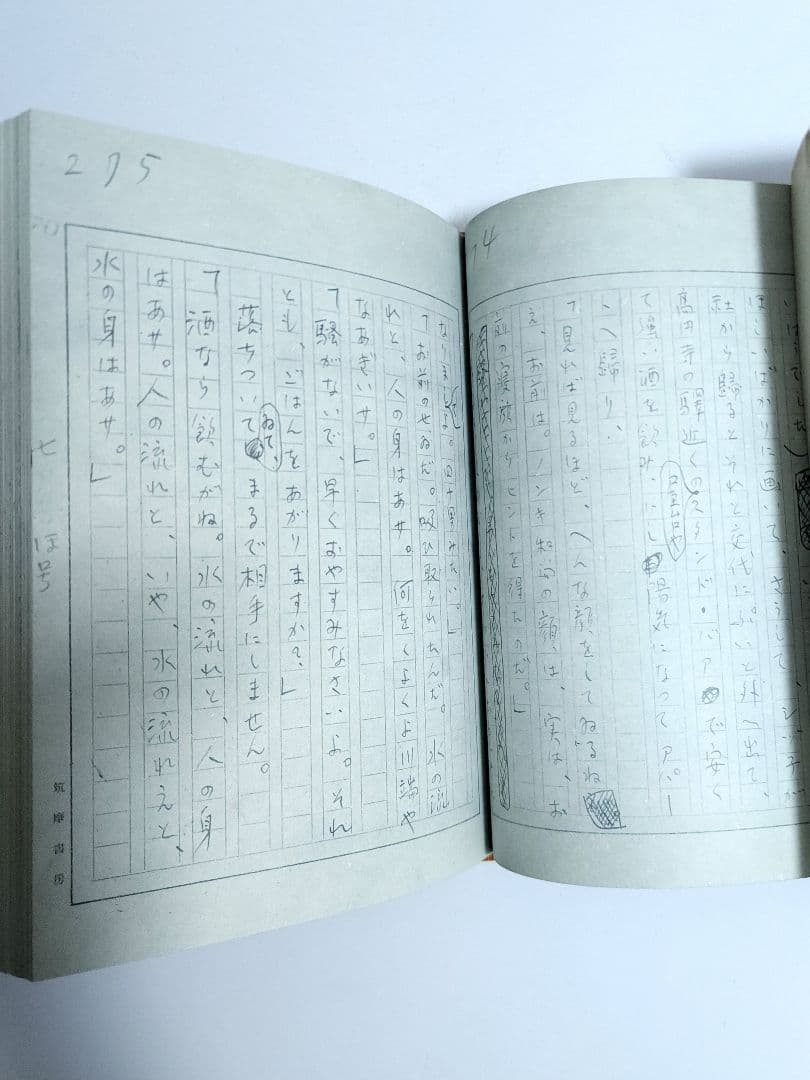 74
ほしいばかりに画いて、さうして、シヅ子が
社から歸るとそれと交代にぷいと外へ出て、
高円寺の驛近くの屋台やスタンド・バアで安く
て強い酒を飲み、陽気になってアパー
トへ歸り、
「見れば見るほど、へんな顔をしてゐるね
え、お前は。ノンキ和尚の顔は、実は、お
前の寝顔からヒントを得たのだ。」
275
四十男みたい。」
「お前のせゐだ。吸ひ取られたんだ。水の流
れと、人の身はあサ。何をくよくよ川端や
なあぎいサ。」
「騒がないで、早くおやすみなさいよ。それ
とも、ごはんをあがりますか?」
落ちついてゐて、まるで相手にしません。
「酒なら飲むがね。水の流れと、人の身
はあサ。人の流れと、いや、水の流れえと、
水の身はあサ。」
筑摩書房